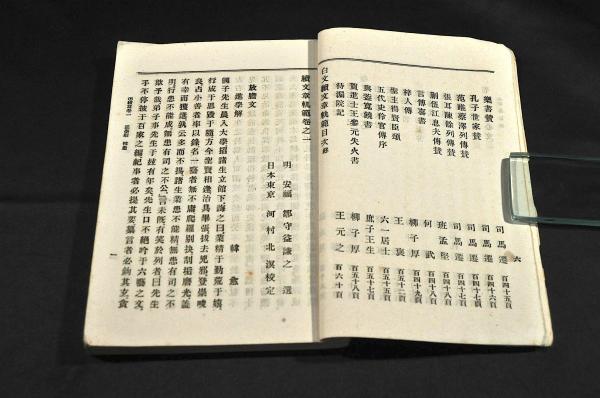 六
樂書贊 司馬遷 百四十五頁
孔子世家贊 司馬遷 百四十六頁
范睢蔡澤列傳贊 司馬遷 百四十七頁
張耳陳餘列傳贊 司馬遷 百四十七頁
蒯伍江息夫傳贊 班孟堅 百四十八頁
言傅喜書 何武 百四十八頁
梓人傳 柳子厚 百四十九頁
聖主得賢臣頌 王褒 百五十二頁
五代史伶官傳序 六一居士 百五十五頁
與遊寬饒書 庶子王生 百五十七頁
賀進士王參元失火書 柳子厚 百五十七頁
待漏院記 王元之 百六十頁
白文續文章軌範目次終
續文章軌範卷之一
明 安福 鄒守益謙之 選
日本東京 河村北溟校定
放膽文
進學解 韓愈
國子先生晨入太學招諸生立館下誨之曰業精于勤荒于嬉
行成于思毀于隨方今聖賢相逢治具畢張拔去兇邪登崇畯
良占小善者率以錄名一藝者無不庸爬羅剔抉刮垢磨光蓋
有幸而獲選孰云多而不揚諸生業患不能精無患有司之不
明行患不能成無患有司之不公言未既有笑於列者曰先生
欺予哉弟子事先生于茲有年矣先生口不絕吟于六藝之文
手不停披于百家之編紀事者必提其要纂言者必鉤其玄貪
一